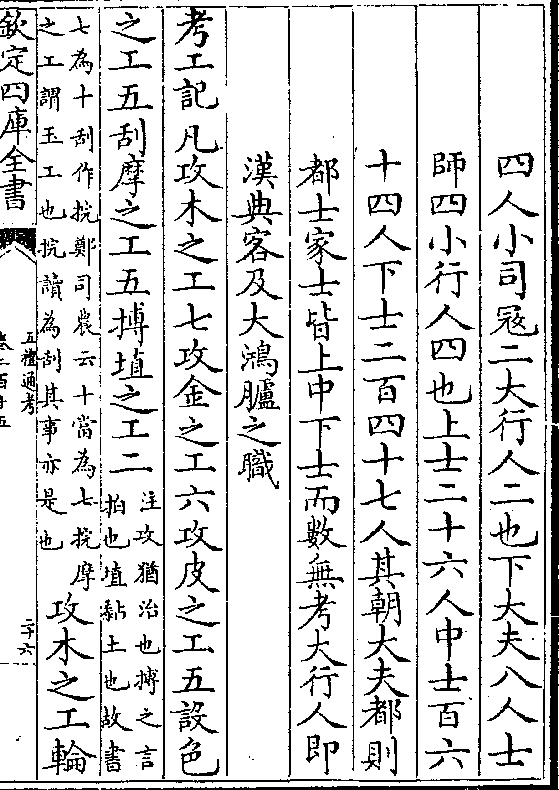 四人小司寇二大行人二也下大夫八人士
師四小行人四也上士二十六人中士百六
十四人下士二百四十七人其朝大夫都則
都士家士皆上中下士而數無考大行人即
漢典客及大鴻臚之職
考工記凡攻木之工七攻金之工六攻皮之工五設色
之工五刮摩之工五搏埴之工二
注攻猶治也搏之言
拍也埴黏土也故書
七為十刮作捖鄭司農云十當為七捖摩
之工謂玉工也捖讀為刮其事亦是也
攻木之工輪
欽定四庫全書
五禮通考
二十六